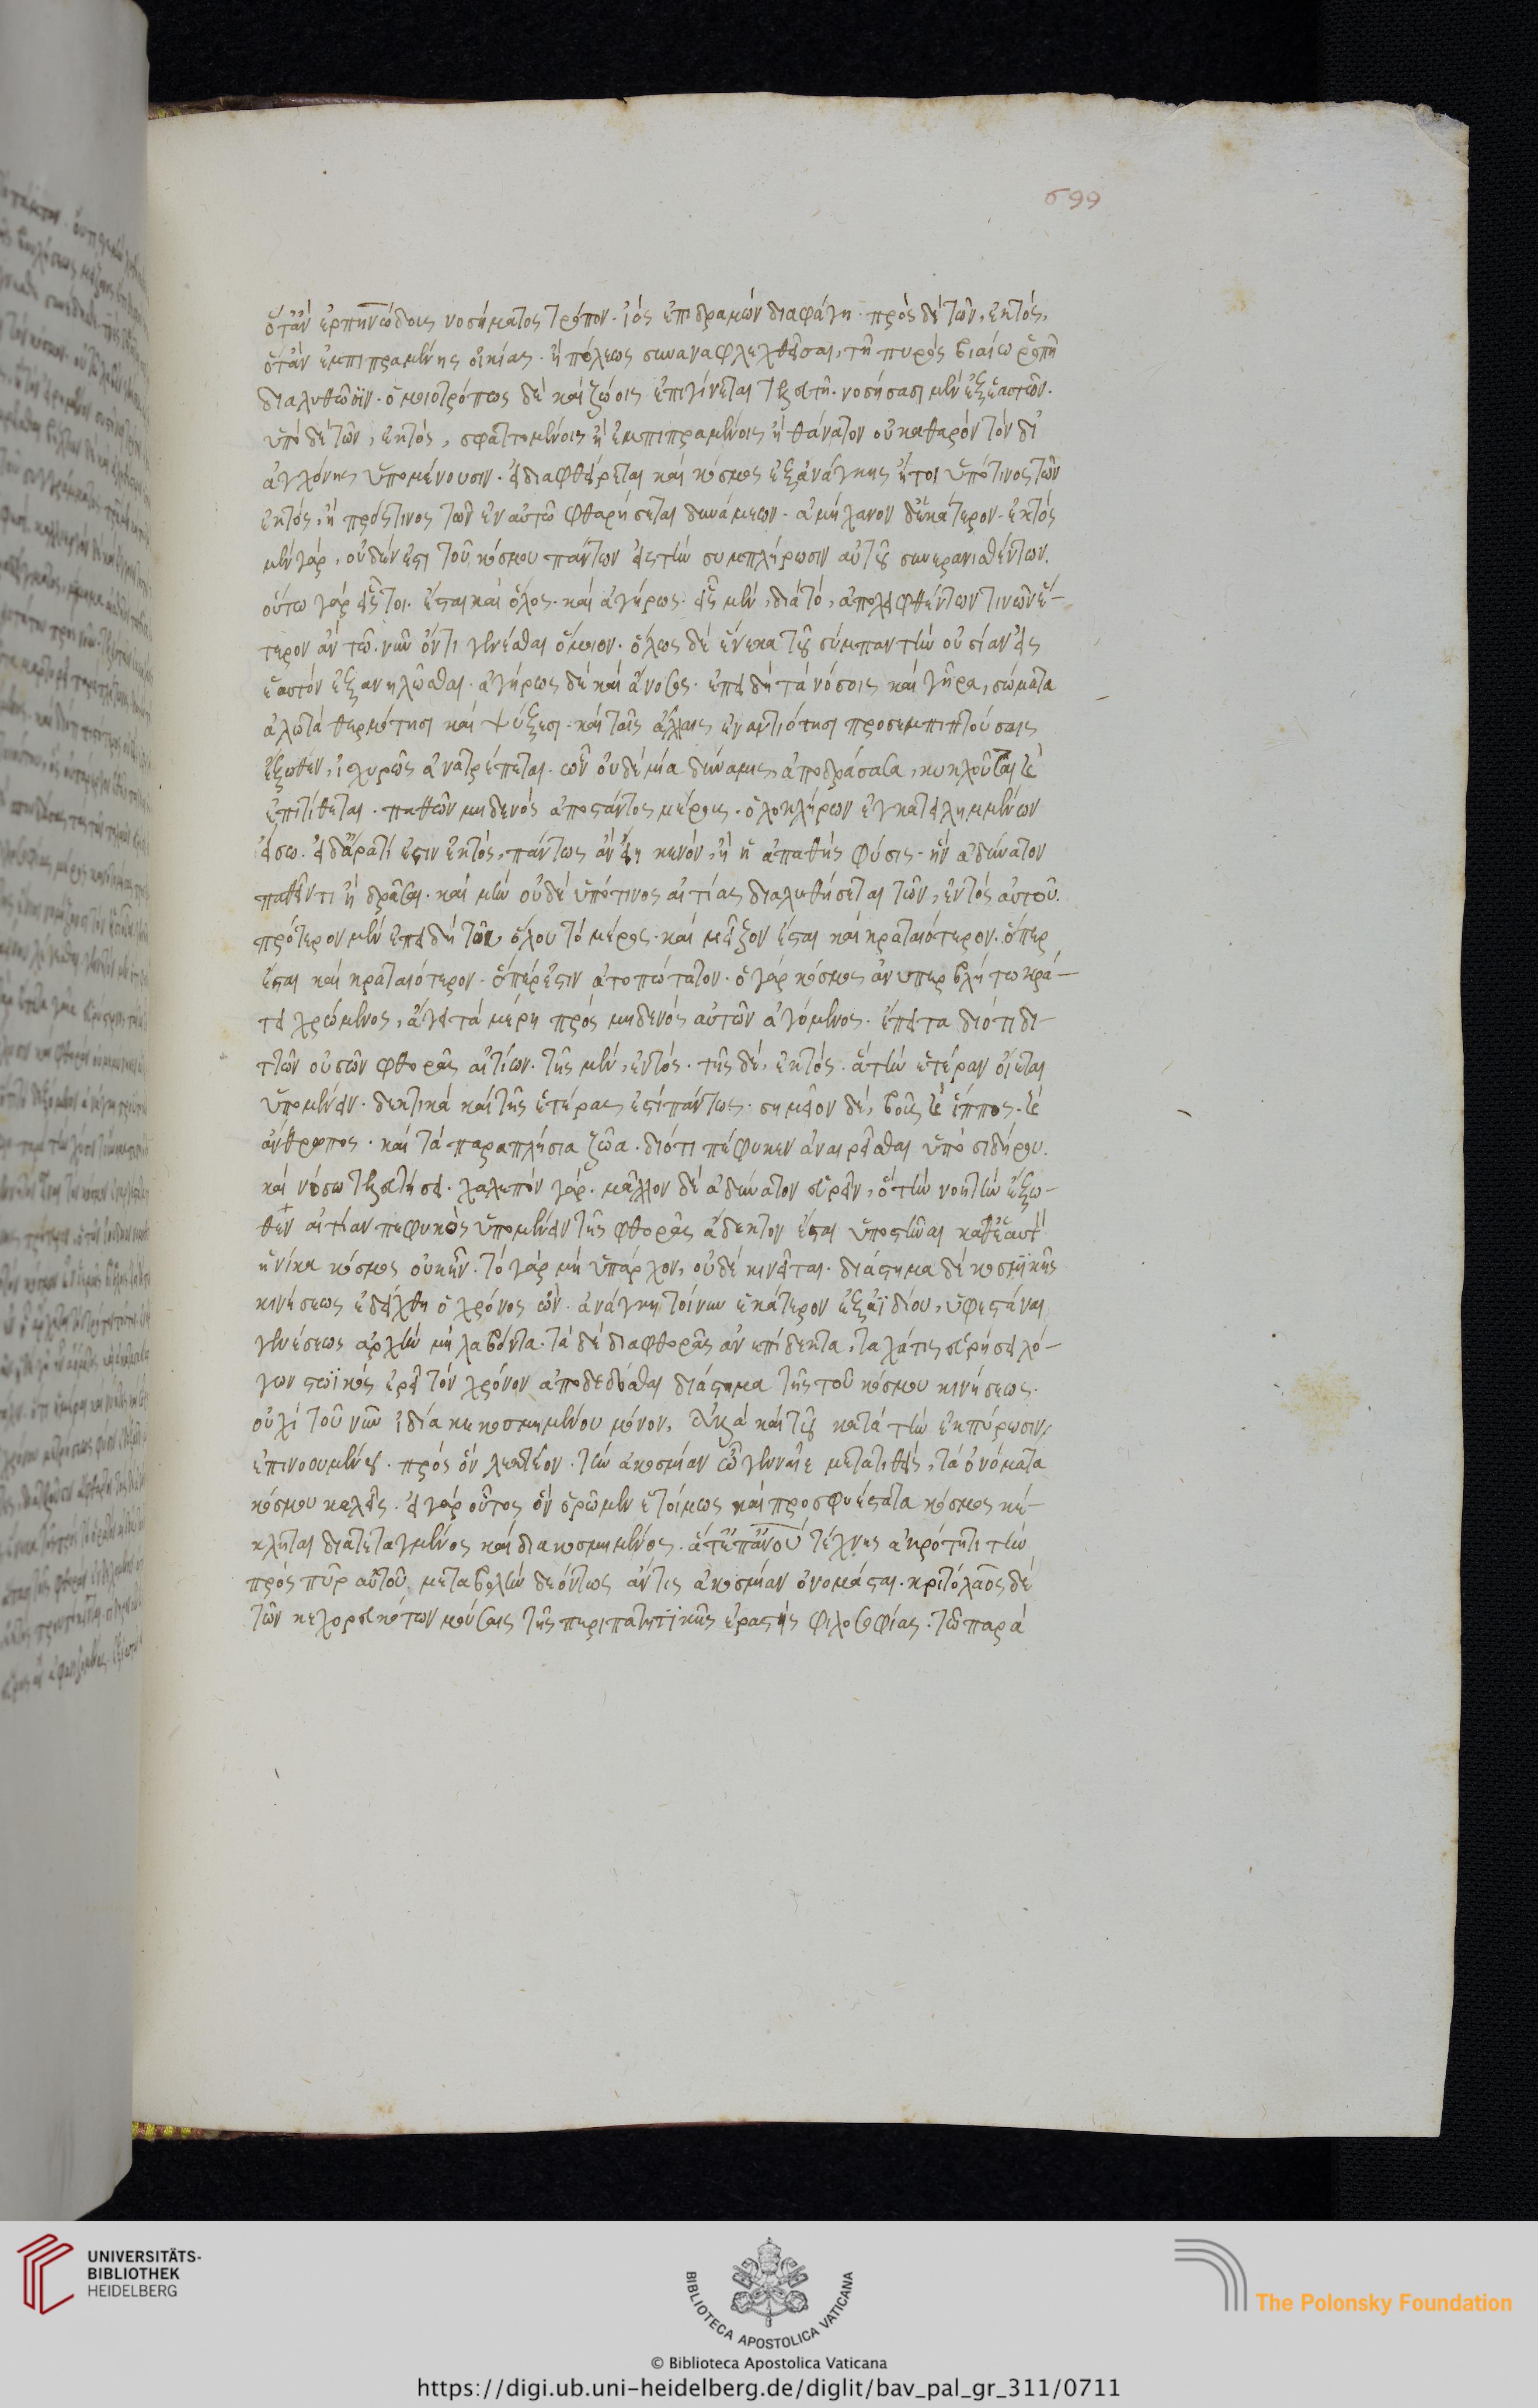 699
ὅτἂν ἑρπηνώδους νοσήματος τρόπον· ἰὸς ἐπιδραμὼν διαφάγη· πρὸς δὲ τῶν, ἐκτὸς,
ὅτὰν ἐμπιπραμένης οἰκίας· ἢ πόλεως συναναφλεχθεῖσαι, τῆ πυρὸς βιαίω ῥοπῆ
διαλυθῶσιν· ὁμοιοτρόπως δὲ καὶ ζώοις ἐπιγίνεται τελευτή· νοσήσασι μὲν ἐξ ἑαυτῶν·
ὑπὸ δὲ τῶν, ἐκτὸς, σφαττομένοις ἢ ἐμπιπραμένοις ἢ θάνατον οὐ καθαρὸν τὸν δι᾽
ἀγχόνης ὑπομένουσιν· εἰ διαφθείρεται καὶ κόσμος ἐξανάγκης ἤτοι ὑπό τινος τῶν
ἐκτὸς, ἢ πρός τινος τῶν ἐν αὐτῶ φθαρήσεται δυνάμεων· ἀμήχανον δ᾽ἑκάτερον· ἐκτὸς
μὲν γὰρ, οὐδέν ἐστι τοῦ κόσμου πάντων εἰς τὴν συμπλήρωσιν αὐτοῦ συνερανισθέντων·
οὕτω γὰρ εἷς τοι· ἔσται καὶ ὅλος· καὶ ἀγήρως· εἷς μὲν, διὰ τὸ, ἀπολειφθέντων τινῶν ἕ-
τερον ἂν τῶ νῦν ὄντι γενέσθαι ὅμοιον· ὅλως δὲ ἕνεκα τοῦ σύμπαν τὴν οὐσίαν εἰς
ἑαυτὸν ἐξανηλῶσθαι· ἀγήρως δὲ καὶ ἄνοσος· ἐπειδὴ τὰ νόσοις καὶ γῆρα, σώματα
ἁλωτὰ θερμότησι καὶ ψύξεσι· καὶ ταῖς ἄλλαις ἐναντιότησι προσεμπιπτούσαις
ἔξωθεν, ἰσχυρῶς ἀνατρέπεται· ὧν οὐδεμία δύναμις, ἀποδράσασα, κυκλοῦται τὲ
ἐπιτίθεται· παθῶν μηδενὸς ἀποστάντος μέρους· ὁλοκλήρων ἐγκατειλημμένων
εἴσω· εἰ δἄρα τί ἐστιν ἐκτὸς, πάντως ἂν εἴη κενὸν, ἢ ἡ ἀπαθὴς φύσις· ἣν ἀδύνατον
παθεῖν τι ἢ δρᾶσαι· καὶ μὴν οὐδὲ ὑπό τινος αἰτίας διαλυθήσεται τῶν, ἐντὸς αὐτοῦ·
πρότερον μὲν ἐπειδὴ τοῦ, ὅλου τὸ μέρος· καὶ μεῖζον ἔσται καὶ κραταιότερον· ὅπερ
ἔσται καὶ κραταιότερον· ὅπέρ ἐστιν ἀτοπώτατον· ὁ γὰρ κόσμος ἀνυπερβλήτω κρά-
τει χρώμενος, ἄγει τὰ μέρη πρὸς μηδενὸς αὐτῶν ἀγόμενος· ἔπειτα διότι δι-
ττῶν οὐσῶν φθορᾶς αἰτίων· τῆς μὲν, ἐντὸς· τῆς δὲ, ἐκτὸς· ἃ τὴν ἑτέραν οἴεται
ὑπομένειν· δεκτικὰ καὶ τῆς ἑτέρας ἐστὶ πάντως· σημεῖον δὲ, βοῦς τὲ ἵππος· τὲ
ἄνθρωπος· καὶ τὰ παραπλήσια ζῶα· διότι πέφυκεν ἀναιρεῖσθαι ὑπὸ σιδήρου·
καὶ νόσω τελευτήσει· χαλεπὸν γὰρ· μᾶλλον δὲ ἀδύνατον εὑρεῖν, ὃ τὴν νοητὴν ἔξω-
θεν αἰτίαν πεφυκὼς ὑπομένειν τῆς φθορᾶς ἄδεκτον ἔσται ὑποστῆναι καθἑαυτ
ἡνίκα κόσμος οὐκῆν· τὸ γὰρ μὴ ὑπάρχον, οὐδὲ κινεῖται· διάστημα δὲ κοσμικῆς
κινήσεως ἐδείχθη ὁ χρόνος ὤν· ἀνάγκη τοίνυν ἑκάτερον ἐξ ἀϊδίου, ὑφεστάναι
γενέσεως ἀρχὴν μὴ λαβόντα· τὰ δὲ διαφθορᾶς ἀνεπίδεκτα, ταχά τις εὑρήσει λό-
γων στωϊκὸς ἐρεῖ τὸν χρόνον ἀποδεδόσθαι διάστημα τῆς τοῦ κόσμου κινήσεως·
οὐχὶ τοῦ νῦν ἰδία κεκοσμημένου μόνον, ἀλλὰ καὶ τοῦ κατὰ τὴν ἐκπύρωσιν
ἐπινοουμένου· πρὸς ὃν λεκτέον· τὴν ἀκοσμίαν ὦ γενναῖε μετατιθεὶς, τὰ ὀνόματα
κόσμου καλεῖς· εἰ γὰρ οὗτος ὃν ὁρῶμεν ἑτοίμως καὶ προσφυέστατα κόσμος κέ-
κληται διατεταγμένος καὶ διακοσμημένος· ἅτἔπἂνοῦ τέχνης ἀκρότητι τὴν
πρὸς πῦρ αὐτοῦ μεταβολὴν δεόντως ἄν τις ἀκοσμίαν ὀνομάσαι· κριτόλαος δὲ
τῶν κεχορευκότων μούσαις τῆς περιπατητικῆς ἐραστὴς φιλοσοφίας· τῶ παρὰ
UNIVERSITÄTS-
BIBLIOTHEK
HEIDELBERG
BIBLIOTECA APOSTOLICA VATICANA
The Polonsky Foundation
© Biblioteca Apostolica Vaticana
https://digi.ub.uni-heidelberg.de/diglit/bav_pal_gr_311/0711